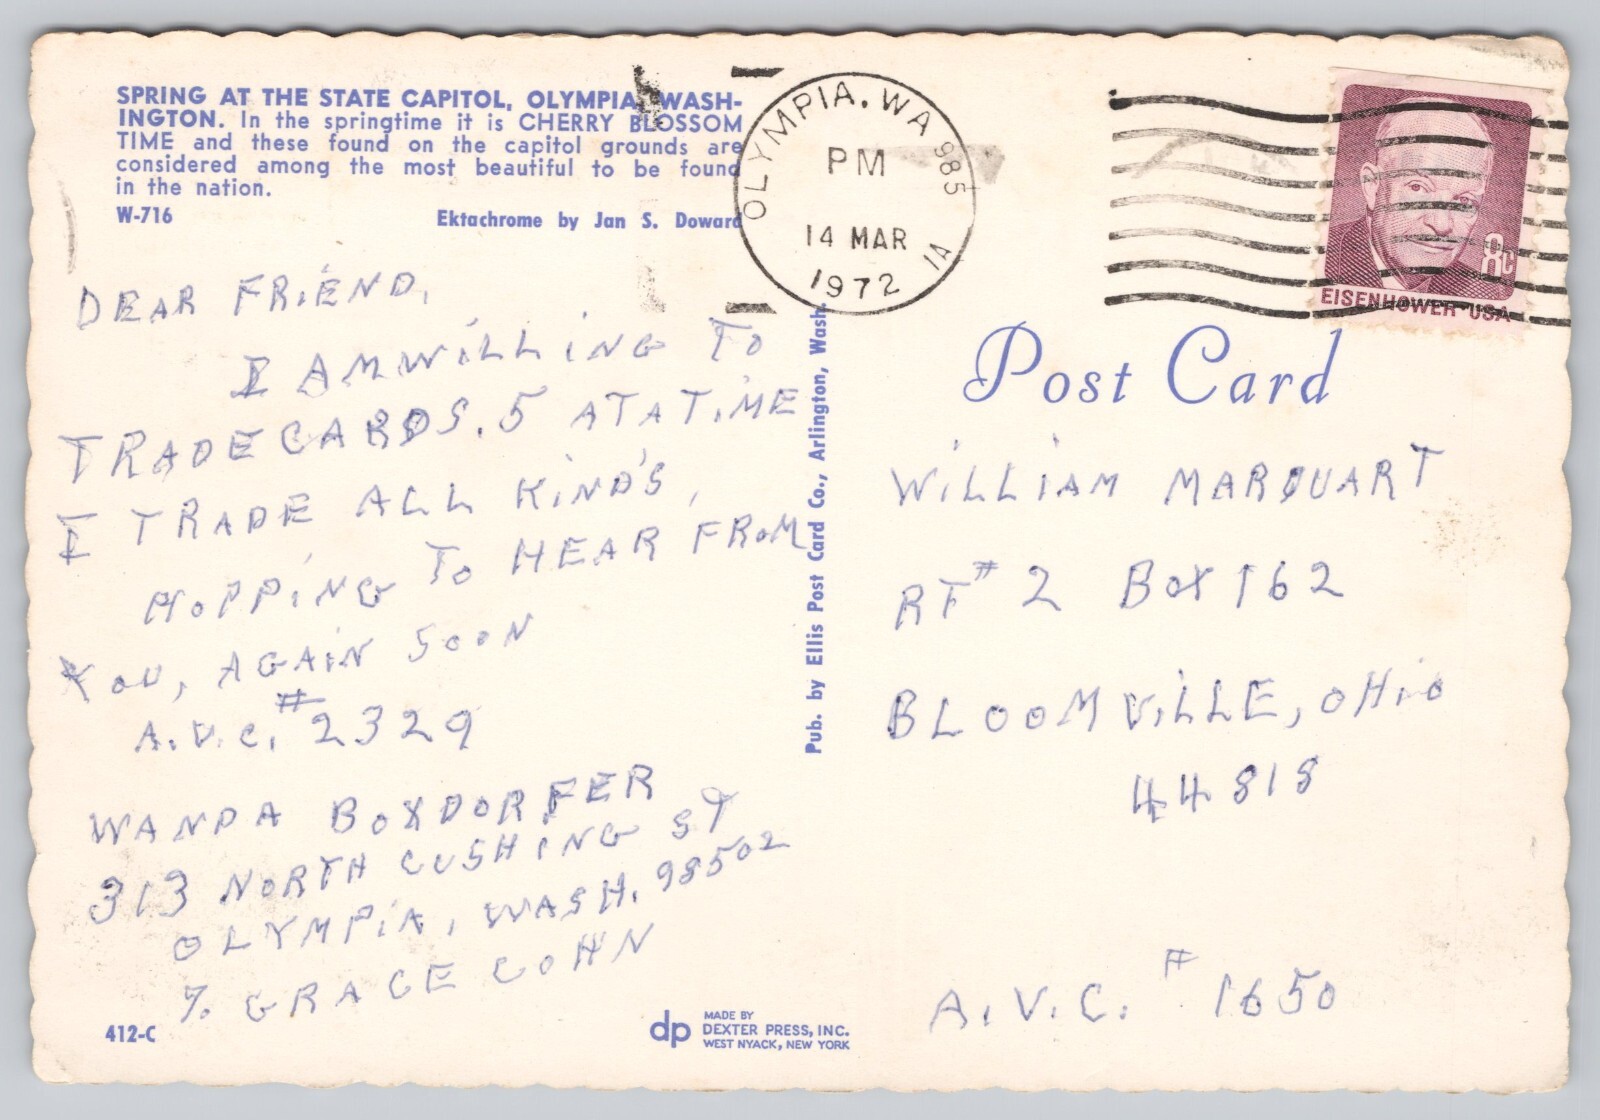 SPRING AT THE STATE CAPITOL, OLYMPIA, WASH-
INGTON. In the springtime it is CHERRY BLOSSOM
TIME and these found on the capitol grounds are
considered among the most beautiful to be found
in the nation.
W-716 Ektachrome by Jan S. Doward
OLYMPIA. WA 985
PM
14 MAR
1972
1A
8c
EISENHOWER·USA
DEAR FRiEND,
I AMWiLLiNG TO
TRADECARDS. 5 ATATiME
I TRADE ALL KiND'S,
HOPPiNG TO HEAR FROM
YOU, AGAiN SOON
A.V.C. #2329
WANDA BOXDORFER
313 NORTH CUSHING ST
OLYMPiA, WASH. 98502
%. GRACE COHN
412-C
dp MADE BY
DEXTER PRESS, INC.
WEST NYACK, NEW YORK
Pub. by Ellis Post Card Co., Arlington, Wash.
Post Card
WiLLiAM MARQUART
RF# 2 BOX 162
BLOOMViLLE, OHiO
44818
A.V.C. # 1650